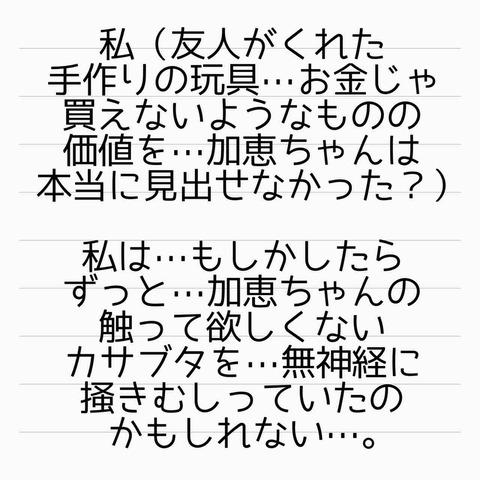 私（友人がくれた
手作りの玩具…お金じゃ
買えないようなものの
価値を…加恵ちゃんは
本当に見出せなかった？）
私は…もしかしたら
ずっと…加恵ちゃんの
触って欲しくない
カサブタを…無神経に
掻きむしっていたの
かもしれない…。